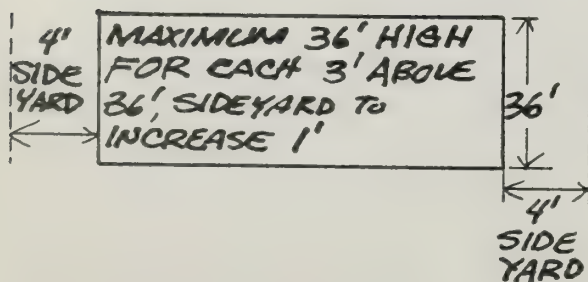 4'
SIDE
YARD
MAXIMUM 36' HIGH
FOR EACH 3' ABOVE
36', SIDEYARD TO
INCREASE 1'
36'
4'
SIDE
YARD